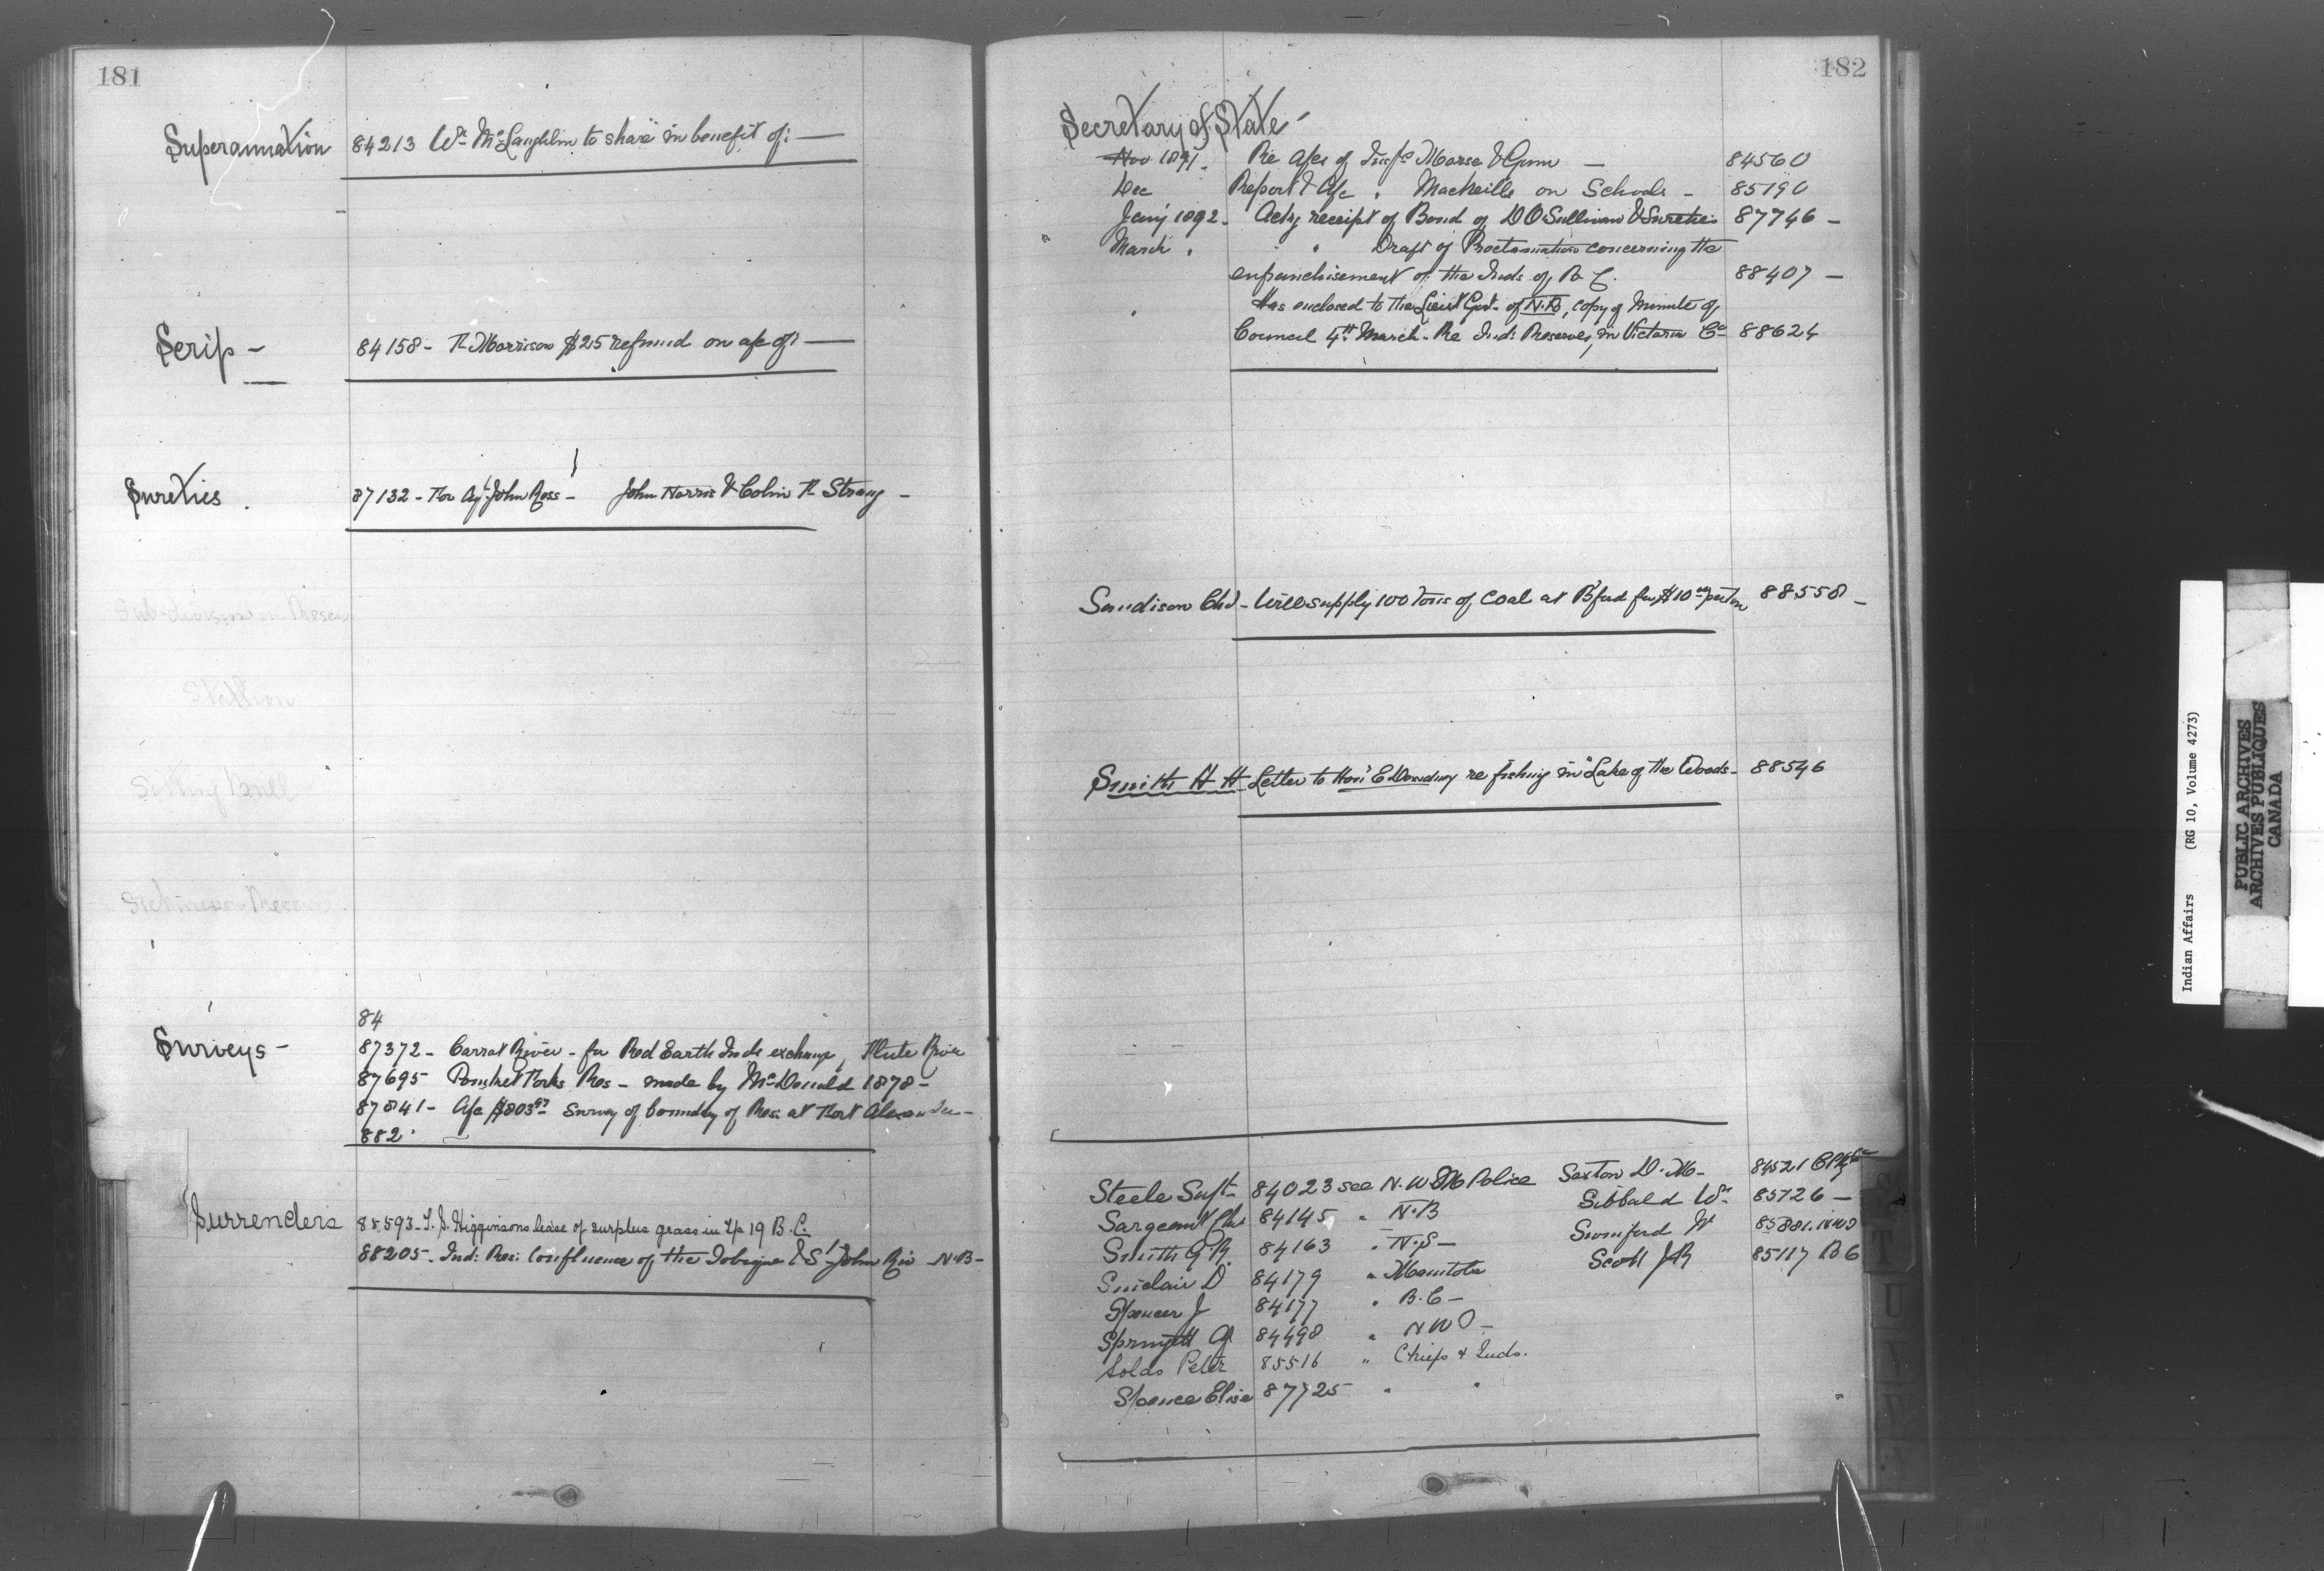 181
Superannuation 84213 Wm McLaughlin to share in benefit of: —
Scrip — 84158 - R Morrison $25 refund on a/c of: —
Sureties. 87132 - For Agt John Ross - John Norris & Colin R Strang -
Sub-division
Stallion
Sitting Bull
Surveys - 84
87372 - Carrot River - for Red Earth Inds exchange,
87695 Res - made by McDonald 1878 -
87841 - a/c $803 Survey of boundry of Res: at Fort Alexander -
882
Surrenders 85593 - Higginsons lease of surplus grass in Tp 19 B.C.
88205 - Ind: Res: Confluence of the Tobique & St John Riv - N.B -
182
Secretary of State -
Nov 1891. Re a/cs of Morse & Gunn — 84560
Dec Report & a/c " on Schools - 85190
Jany 1892 - Ackg receipt of Bond of D O'Sullivan & Sureties 87746 -
March " " " Draft of Proclamation concerning the
enfranchisement of the Inds of B C. 88407 —
" Has enclosed to the Lieut Govr of N.B, copy of Minute of
Council 4th March - Re Ind: Reserves, in Victoria Co 88624
Sandison Chs - Will supply 100 Tons of Coal at B'ford for $10 per ton 88558 -
Smith H H Letter to Hon E Dewdney re fishing in "Lake of the Woods - 88546
Steele Supt - 84023 see N.W.M Police Sexton D. M - 84521
Sargeant 84145 " N.B Sibbald Wm 85726 —
Smith G R. 84163 " N.S — 85881. NWO
Sinclair D 84179 " Manitoba Scott J R 85117 B C
Spencer J 84177 " B.C —
Springett A 84498 " N W O -
Solds Peter 85516 " Chiefs & Inds.
Spence Elise 87725 " "
S
T
U
V
Indian Affairs (RG 10, Volume 4273)
PUBLIC ARCHIVES
ARCHIVES PUBLIQUES
CANADA